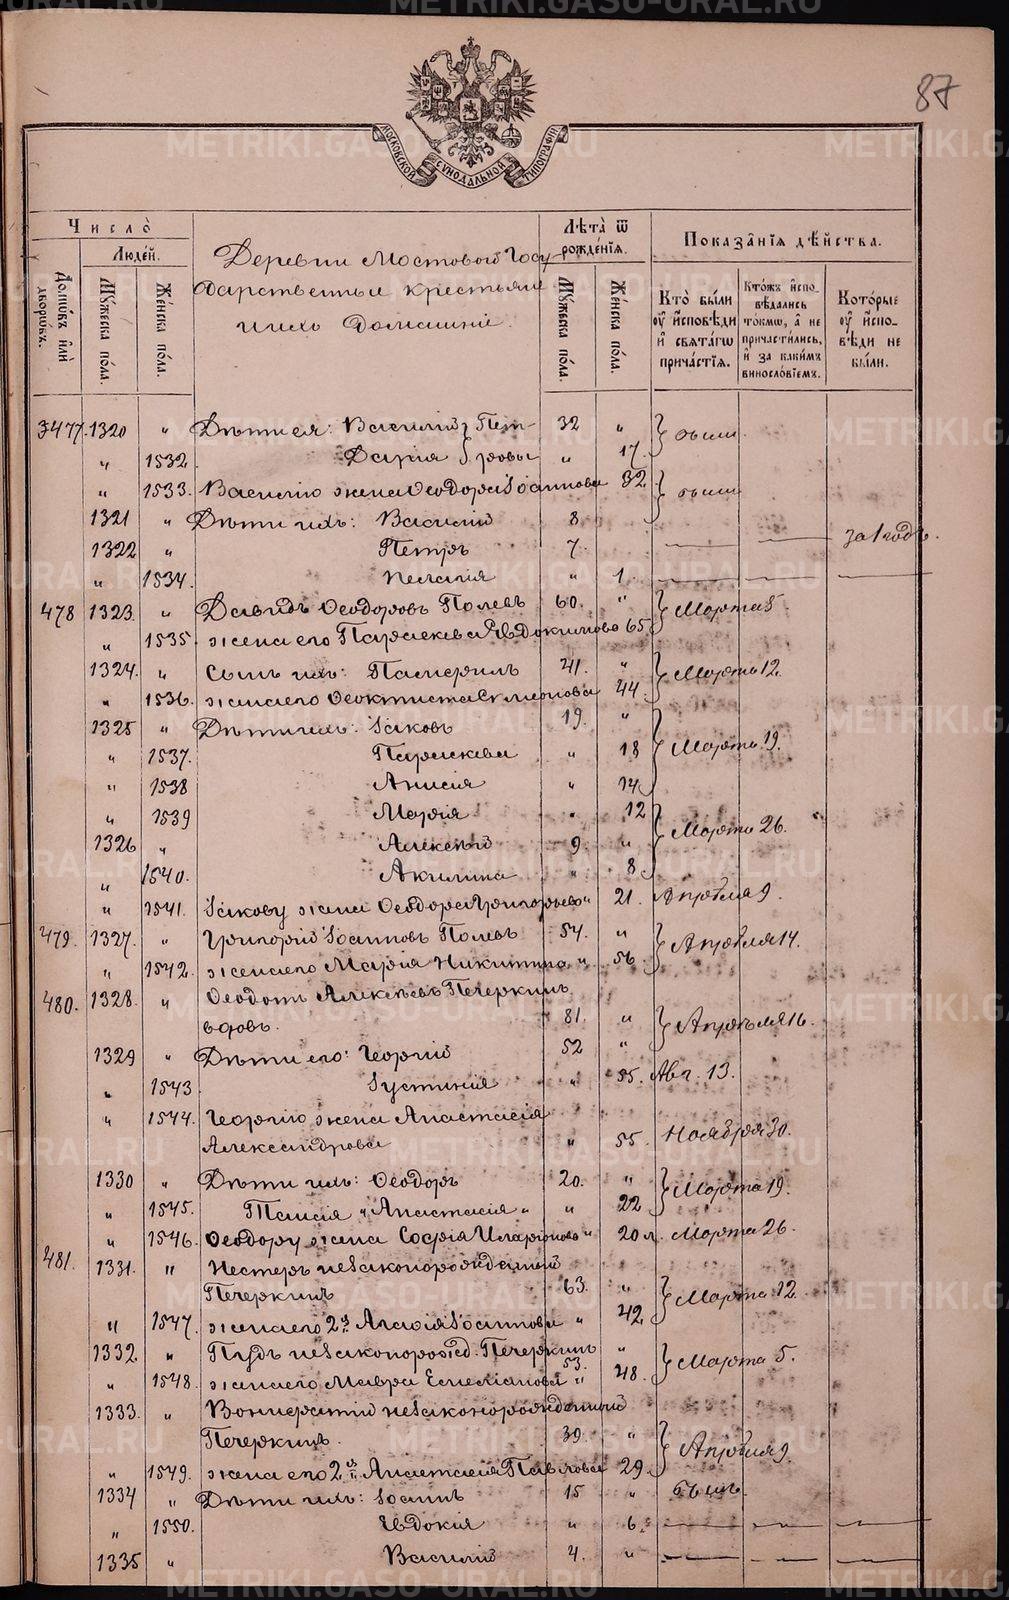 87
МОСКОВСКОЙ СѴНОДАЛЬНОЙ ТИПОГРАФІИ
Число̀
Люде́й.
Домѡ́въ и҆лѝ дворѡ́въ.
Мꙋ́жеска по́ла.
Же́нска по́ла.
Деревни Мостовой Госу-
дарственные крестьяне
и ихъ домашніе.
Лѣ́та ѿ рожде́нїѧ.
Мꙋ́жеска по́ла.
Же́нска по́ла.
Показа̑нїѧ дѣ́йства.
Кто̀ бы́ли ᲂу҆ и҆́сповѣди и҆ свѧта́гѡ прича́стїѧ.
Кто́жъ и҆спо-вѣ́дались то́кмѡ, а҆ не причасти́лись, и҆ за каки́мъ винослові́емъ.
Кото́рые ᲂу҆ и҆́спо-вѣди не бы́ли.
477. 1320 " Дѣти ея: Василій Пет- 32 " были
" 1532. Дарія ровы " 17.
" 1533. Василію жена Ѳеодора Іоаннова 32 были
1321 " Дѣти ихъ: Василій 8
1322 " Петръ 7. — — за 1 годъ.
" 1534. Пелагія " 1. — — —
478 1323. " Давидъ Ѳеодоровъ Полевъ 60. " Марта 5.
" 1535. жена его Параскева Евдокимова 65.
1324. " Сынъ ихъ: Памфилъ 41. " Марта 12.
" 1536. жена его Ѳеоктиста Симеонова 44
1325 " Дѣти ихъ: Іаковъ 19. " Марта 19.
" 1537. Параскева " 18
" 1538 Анисія " 14
" 1539 Марія " 12 Марта 26.
1326 " Алексѣй 9. "
" 1540. Акилина " 8
" 1541. Іакову жена Ѳеодора Григорьева " 21. Апрѣля 9.
479. 1327. " Григорій Іоанновъ Полевъ 54. " Апрѣля 14.
" 1542. жена его Марія Никитина " 56.
480. 1328. " Ѳеодотъ Алексѣевъ Печеркинъ
вдовъ. 81. " Апрѣля 16.
1329 " Дѣти его: Георгій 52 "
" 1543 Іустинія " 55. Авг. 13.
" 1544. Георгію жена Анастасія
Александрова " 55. Ноября 30.
1330 " Дѣти ихъ: Ѳеодоръ 20. " Марта 19.
" 1545. Таисія " Анастасія " " 22
" 1546. Ѳеодору жена Софія Иларіонова " 20 л. Марта 26.
481. 1331. " Несторъ незаконорожденный
Печеркинъ 63. " Марта 12.
" 1547. жена его 2я Агаѳія Іоаннова " 42
1332. " Пудъ незаконорожд. Печеркинъ 53. " Марта 5.
" 1548. жена его Мавра Емеліанова " 48.
1333. " Вонифатій незаконорожденный
Печеркинъ. 39. " Апрѣля 9.
" 1549. жена его 2я Анастасія Павлова 29.
1334 " Дѣти ихъ: Іоаннъ 15 " былъ
" 1550. Евдокія " 6. — — —
1335 " Василій 4. " — — —
METRIKI.GASO-URAL.RU